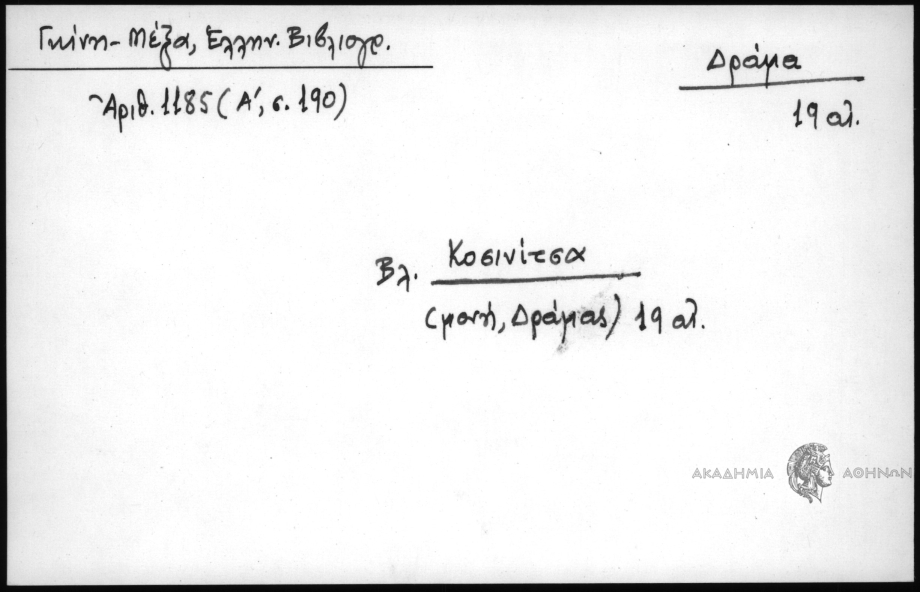 Γκίνη - Μέξα, Ἑλλην. Βιβλιογρ.
Ἀριθ. 1185 (Α΄, σ. 190)
Δράμα
19 αἰ.
Βλ. Κοσινίτσα
(μονή, Δράμας) 19 αἰ.
ΑΚΑΔΗΜΙΑ ΑΘΗΝΩΝ